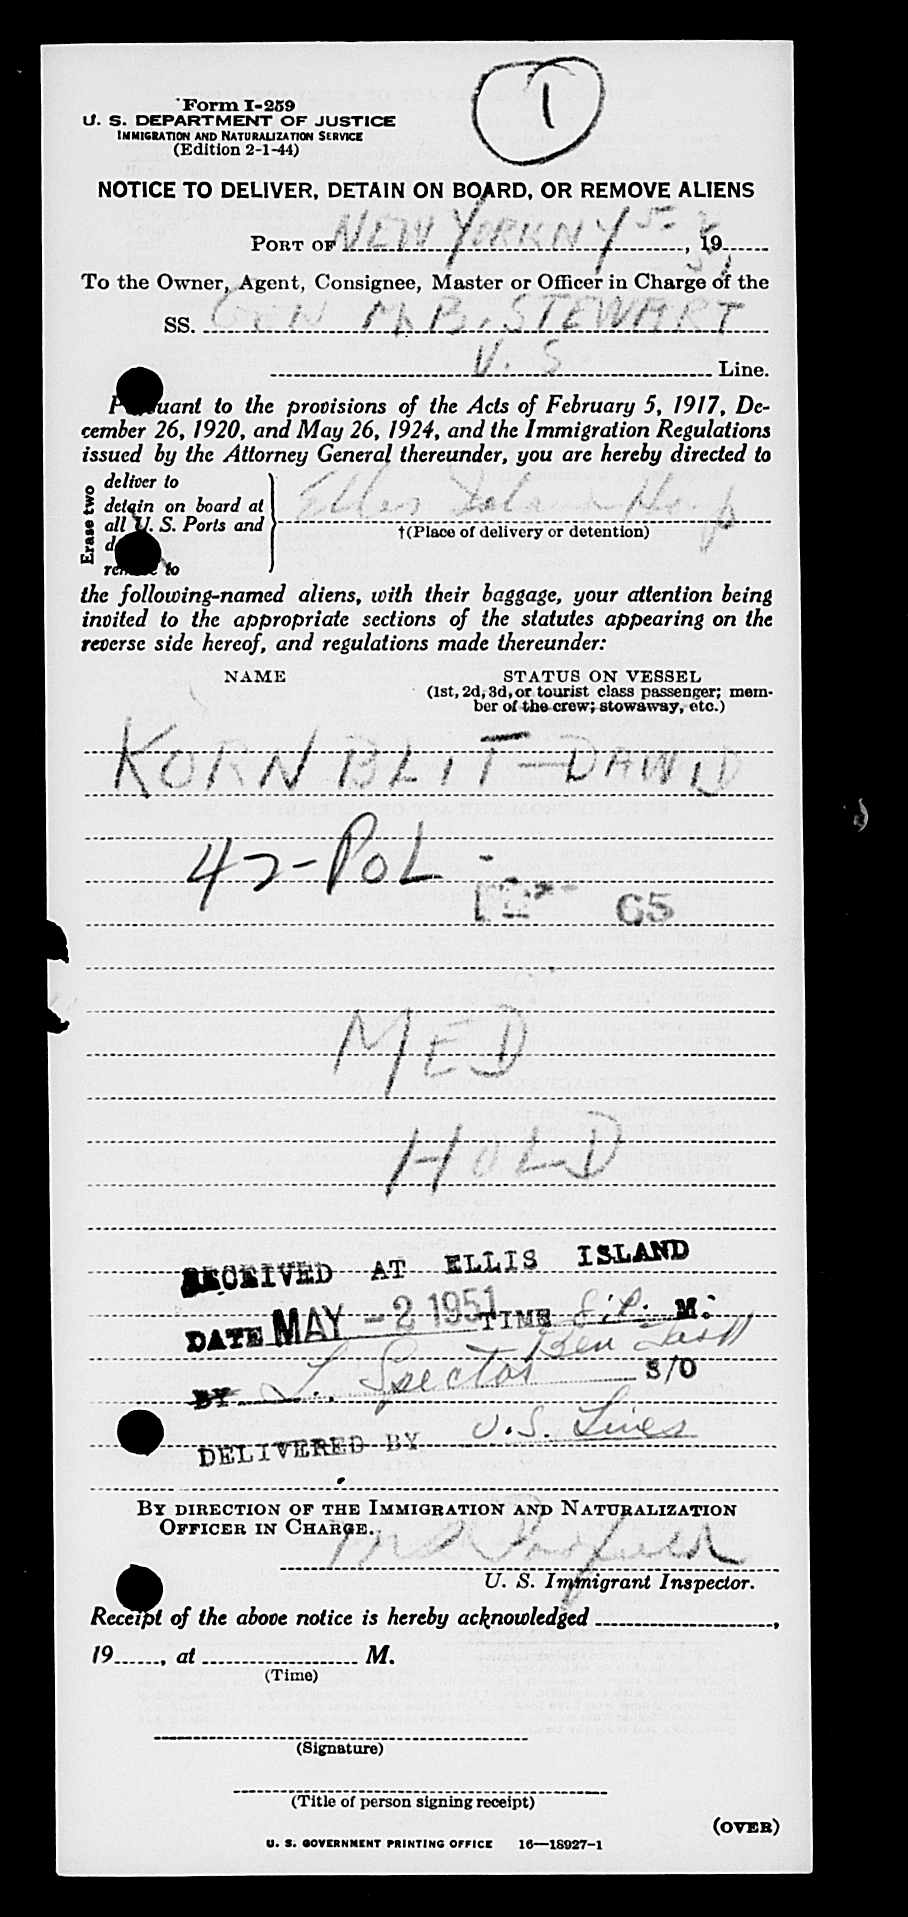 1
Form I-259
U. S. DEPARTMENT OF JUSTICE
IMMIGRATION AND NATURALIZATION SERVICE
(Edition 2-1-44)
NOTICE TO DELIVER, DETAIN ON BOARD, OR REMOVE ALIENS
PORT OF NEW YORK N Y 5-, 19
To the Owner, Agent, Consignee, Master or Officer in Charge of the
SS. GEN M. B. STEWART
U. S Line.
Pursuant to the provisions of the Acts of February 5, 1917, De-
cember 26, 1920, and May 26, 1924, and the Immigration Regulations
issued by the Attorney General thereunder, you are hereby directed to
Erase two
deliver to
detain on board at
all U. S. Ports and
remove to
Ellis Island Hosp
†(Place of delivery or detention)
the following-named aliens, with their baggage, your attention being
invited to the appropriate sections of the statutes appearing on the
reverse side hereof, and regulations made thereunder:
NAME STATUS ON VESSEL
(1st, 2d, 3d, or tourist class passenger; mem-
ber of the crew; stowaway, etc.)
KORNBLIT - DAWID
42 - POL -
65
MED
HOLD
RECEIVED AT ELLIS ISLAND
DATE MAY - 2 1951 TIME P. M.
Ben
BY L. Spector S/O
DELIVERED BY U.S. Lines
BY DIRECTION OF THE IMMIGRATION AND NATURALIZATION
OFFICER IN CHARGE.
U. S. Immigrant Inspector.
Receipt of the above notice is hereby acknowledged ,
19 , at M.
(Time)
(Signature)
(Title of person signing receipt)
(OVER)
U. S. GOVERNMENT PRINTING OFFICE 16—18927-1